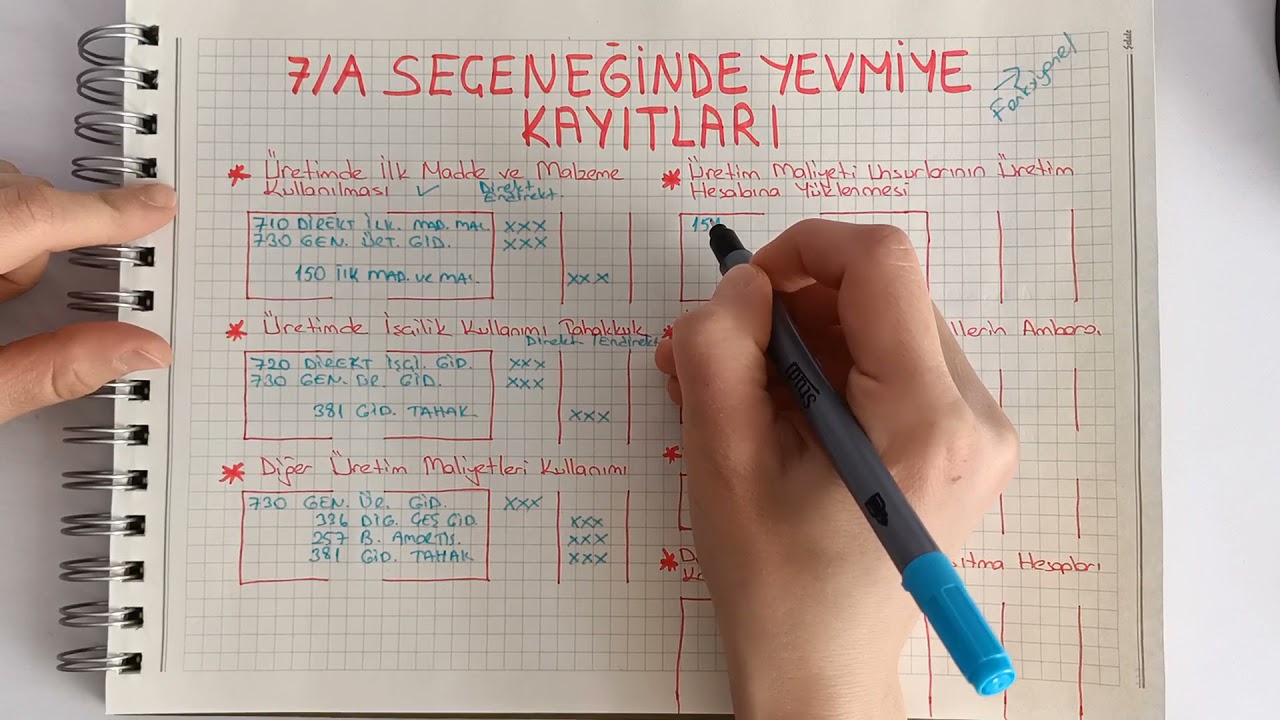 7/A SEÇENEĞİNDE YEVMİYE
KAYITLARI
Fonksiyonel
* Üretimde İlk Madde ve Malzeme
Kullanılması ✓
Direkt
Endirekt
710 DİREKT İLK. MAD. MAL XXX
730 GEN. ÜRT. GİD. XXX
150 İLK MAD. VE MAL. XXX
* Üretimde İşçilik Kullanımı Tahakkuk
Direkt / Endirekt
720 DİREKT İŞÇİ. GİD. XXX
730 GEN. ÜR. GİD. XXX
381 GİD. TAHAK XXX
* Diğer Üretim Maliyetleri Kullanımı
730 GEN. ÜR. GİD. XXX
336 DİĞ. ÇEŞ GİD. XXX
257 B. AMORTİS. XXX
381 GİD. TAHAK XXX
* Üretim Maliyeti Unsurlarının Üretim
Hesabına Yüklenmesi
151
Ambara.
Hesapları
STABILO